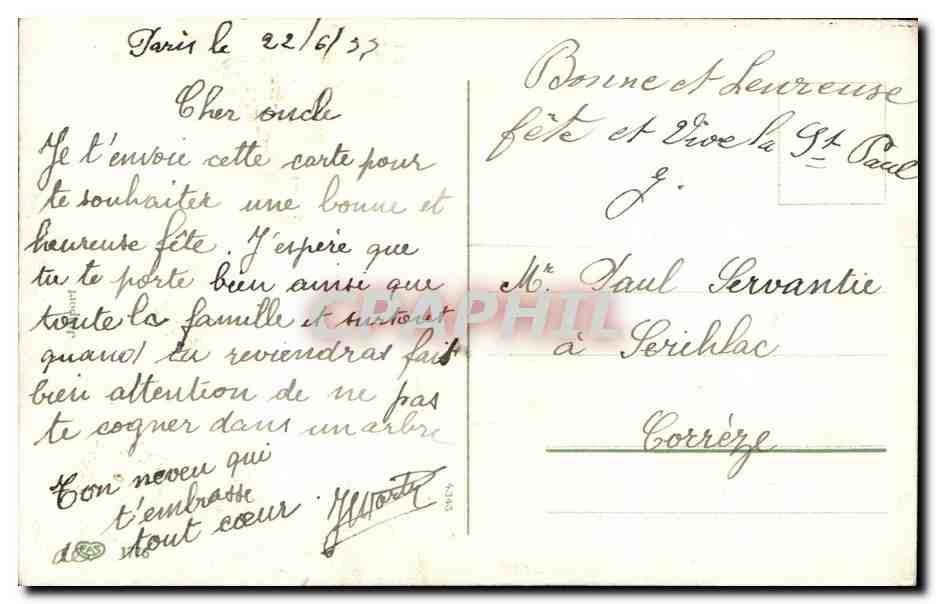 Paris le 22/6/33
Cher oncle
Je t'envoie cette carte pour
te souhaiter une bonne et
heureuse fête. J'espère que
tu te porte bien ainsi que
toute la famille et surtout
quand tu reviendras fais
bien attention de ne pas
te cogner dans un arbre
Ton neveu qui
t'embrasse
tout cœur
4343
Bonne et heureuse
fête et Vive la St Paul
J.
Mr. Paul Servantie
à Serihlac
Corrèze
CPAPHIL